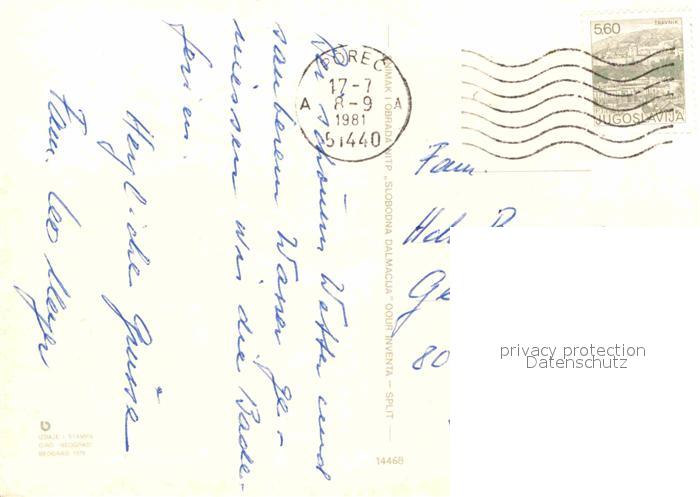 Bei schönem Wetter und
sauberem Wasser ge-
niessen wir die Bade-
ferien.
Herzliche Grüsse
Fam. Leo Meyer
POREČ
17-7
A 8-9 A
1981
51440
TRAVNIK
5,60
JUGOSLAVIJA
SNIMAK I OBRADA NITP „SLOBODNA DALMACIJA" OOUR INVENTA — SPLIT
Fam.
Ge
80
privacy protection
Datenschutz
14468
IZDAJE I ŠTAMPA
BEOGRAD 1979